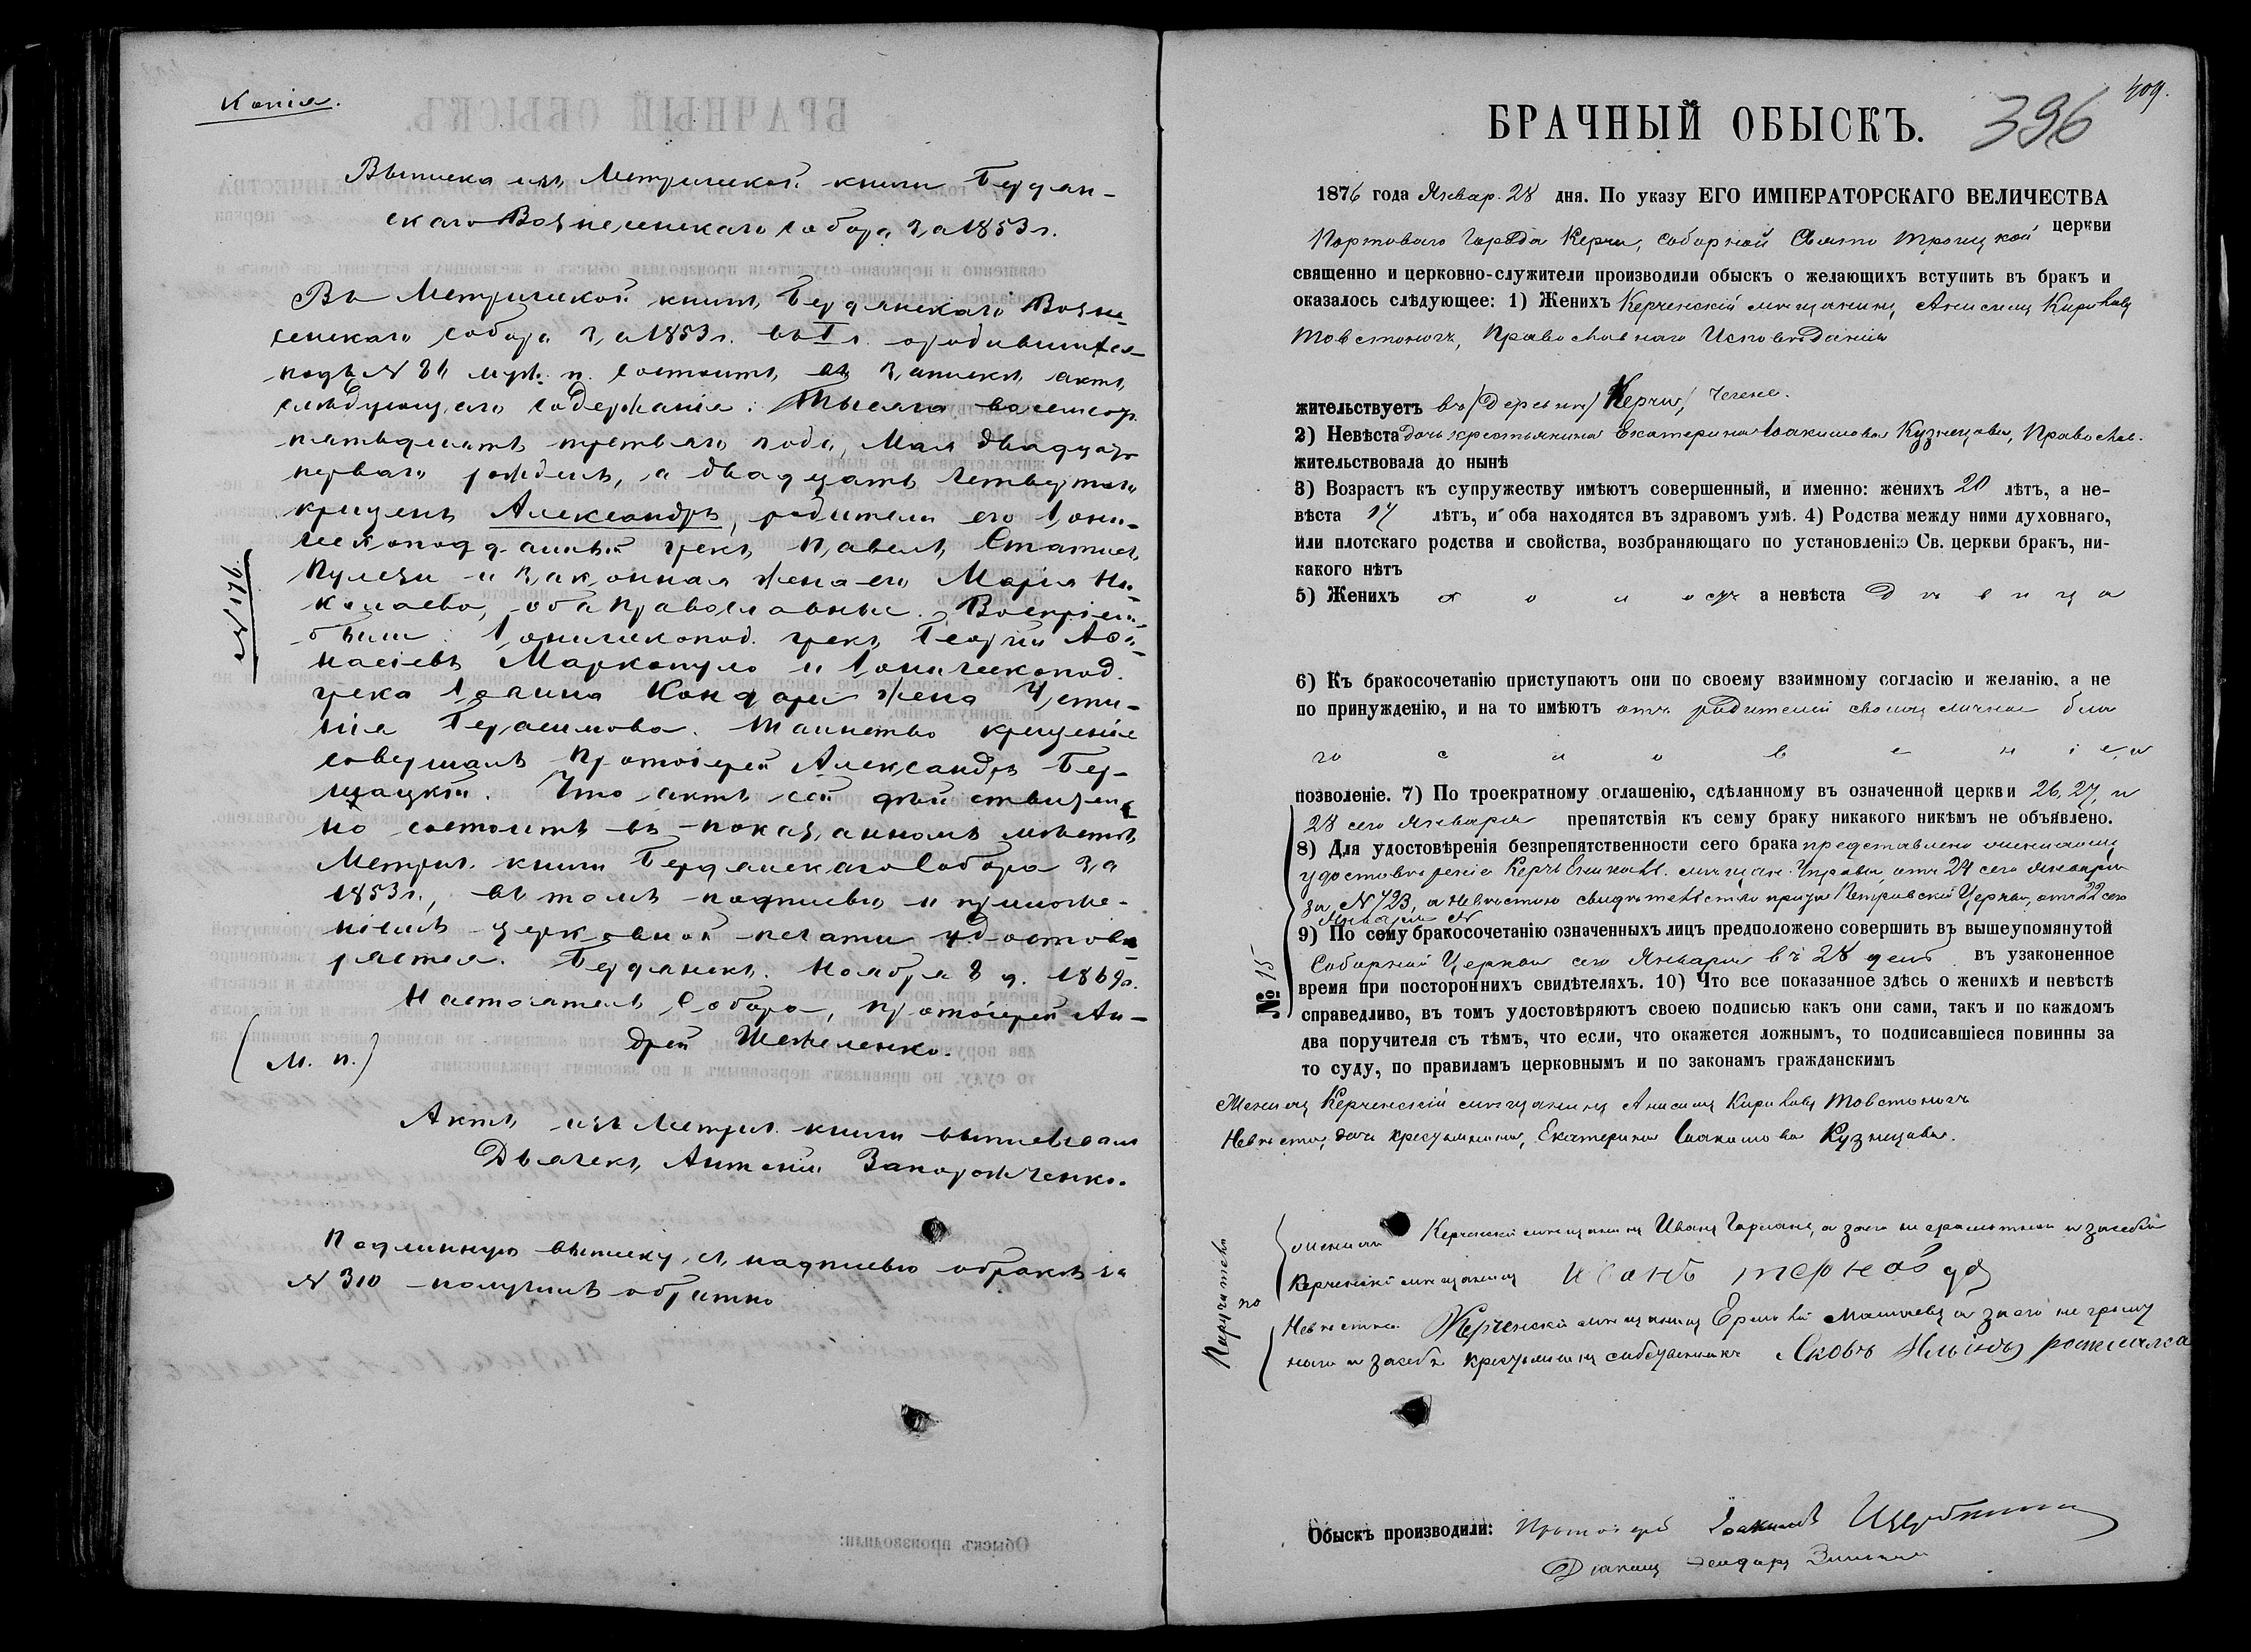 Копія.
Выписка изъ Метрической книги Бердян-
скаго Вознесенскаго собора за 1853 г.
Въ Метрической книгѣ Бердянскаго Возне-
сенскаго собора за 1853 г. въ I ч. о родившихся
подъ № 81 муж. п. состоитъ въ записи актъ
слѣдующаго содержанія: Тысяча восемсотъ
пятьдесятъ третьяго года, Мая двадцать
перваго рожденъ, а двадцать четвертаго
крещенъ Александръ, родители его Іони-
ческоподданный грекъ Павелъ Статіевъ
Пулези и законная жена его Марія Ни-
колаева, оба православные. Воспріем.
были: Іоническопод. грекъ Георгій Аѳа-
насіевъ Маркопуло и Іоническопод.
грека Іоанна Кондари жена Усти-
нія Герасимова. Таинство крещенія
совершалъ Протоіерей Александръ Бер-
щацкій. Что актъ сей дѣйствитель-
но состоитъ въ показанномъ мѣстѣ
Метрич. книги Бердянскаго Собора за
1853 г., въ томъ подписью и приложе-
ніемъ церковной печати удостовѣ-
ряется. Бердянскъ. Ноября 8 д. 1869 г.
Настоятель Собора, протоіерей Ан-
дрей Шевеленко.
(М. п.)
№ 176.
Актъ изъ Метрич. книги выписывалъ
Дьячекъ Антоній Запорожченко.
Подлинную выписку, съ надписью о бракѣ за
№ 310 получилъ обратно
409.
396
БРАЧНЫЙ ОБЫСКЪ.
1876 года Январ. 28 дня. По указу ЕГО ИМПЕРАТОРСКАГО ВЕЛИЧЕСТВА
Портоваго Города Керчи, соборной Свято Троицкой церкви
священно и церковно-служители производили обыскъ о желающихъ вступить въ бракъ и
оказалось слѣдующее: 1) Женихъ Керченскій мѣщанинъ, Анисимъ Кириловъ
Товстоногъ, Православнаго Исповѣданія
жительствуетъ въ /деревнѣ/ Керчи,
2) Невѣста дочь крестьянина Екатерина Іоакимова Кузнецова, Православ.
жительствовала до нынѣ
3) Возрастъ къ супружеству имѣютъ совершенный, и именно: женихъ 20 лѣтъ, а не-
вѣста 17 лѣтъ, и оба находятся въ здравомъ умѣ. 4) Родства между ними духовнаго,
или плотскаго родства и свойства, возбраняющаго по установленію Св. церкви бракъ, ни-
какого нѣтъ
5) Женихъ холостъ а невѣста дѣвица
6) Къ бракосочетанію приступаютъ они по своему взаимному согласію и желанію, а не
по принужденію, и на то имѣютъ отъ родителей своихъ личное бла
гословеніе и
позволеніе. 7) По троекратному оглашенію, сдѣланному въ означенной церкви 26, 27, и
28 сего Января препятствія къ сему браку никакого никѣмъ не объявлено.
8) Для удостовѣренія безпрепятственности сего брака представлено женихомъ
удостовѣреніе Керчь Еникал. мѣщан. Управы, отъ 24 сего Января
за № 723, а невѣстою свидѣтельство Петровской Церкви, отъ 22 сего
Января №
9) По сему бракосочетанію означенныхъ лицъ предположено совершить въ вышеупомянутой
Соборной Церкви сего Января въ 28 день въ узаконенное
время при постороннихъ свидѣтеляхъ. 10) Что все показанное здѣсь о женихѣ и невѣстѣ
справедливо, въ томъ удостовѣряютъ своею подписью какъ они сами, такъ и по каждомъ
два поручителя съ тѣмъ, что если, что окажется ложнымъ, то подписавшіеся повинны за
то суду, по правиламъ церковнымъ и по законамъ гражданскимъ
№ 15
Женихъ Керченскій мѣщанинъ Анисимъ Кириловъ Товстоногъ
Невѣста, дочь крестьянина, Екатерина Іоакимова Кузнецова.
Поручители по
женихѣ Керченскій мѣщанинъ Иванъ а за его неграмотнаго и за себя
Керченскій мѣщанинъ Иванъ
Невѣстѣ. Керченскій мѣщанинъ а за его неграмот
наго и за себя крестьянинъ собственникъ Яковъ Ильинъ
Обыскъ производили: Протоіерей Іоакимъ
Діаконъ